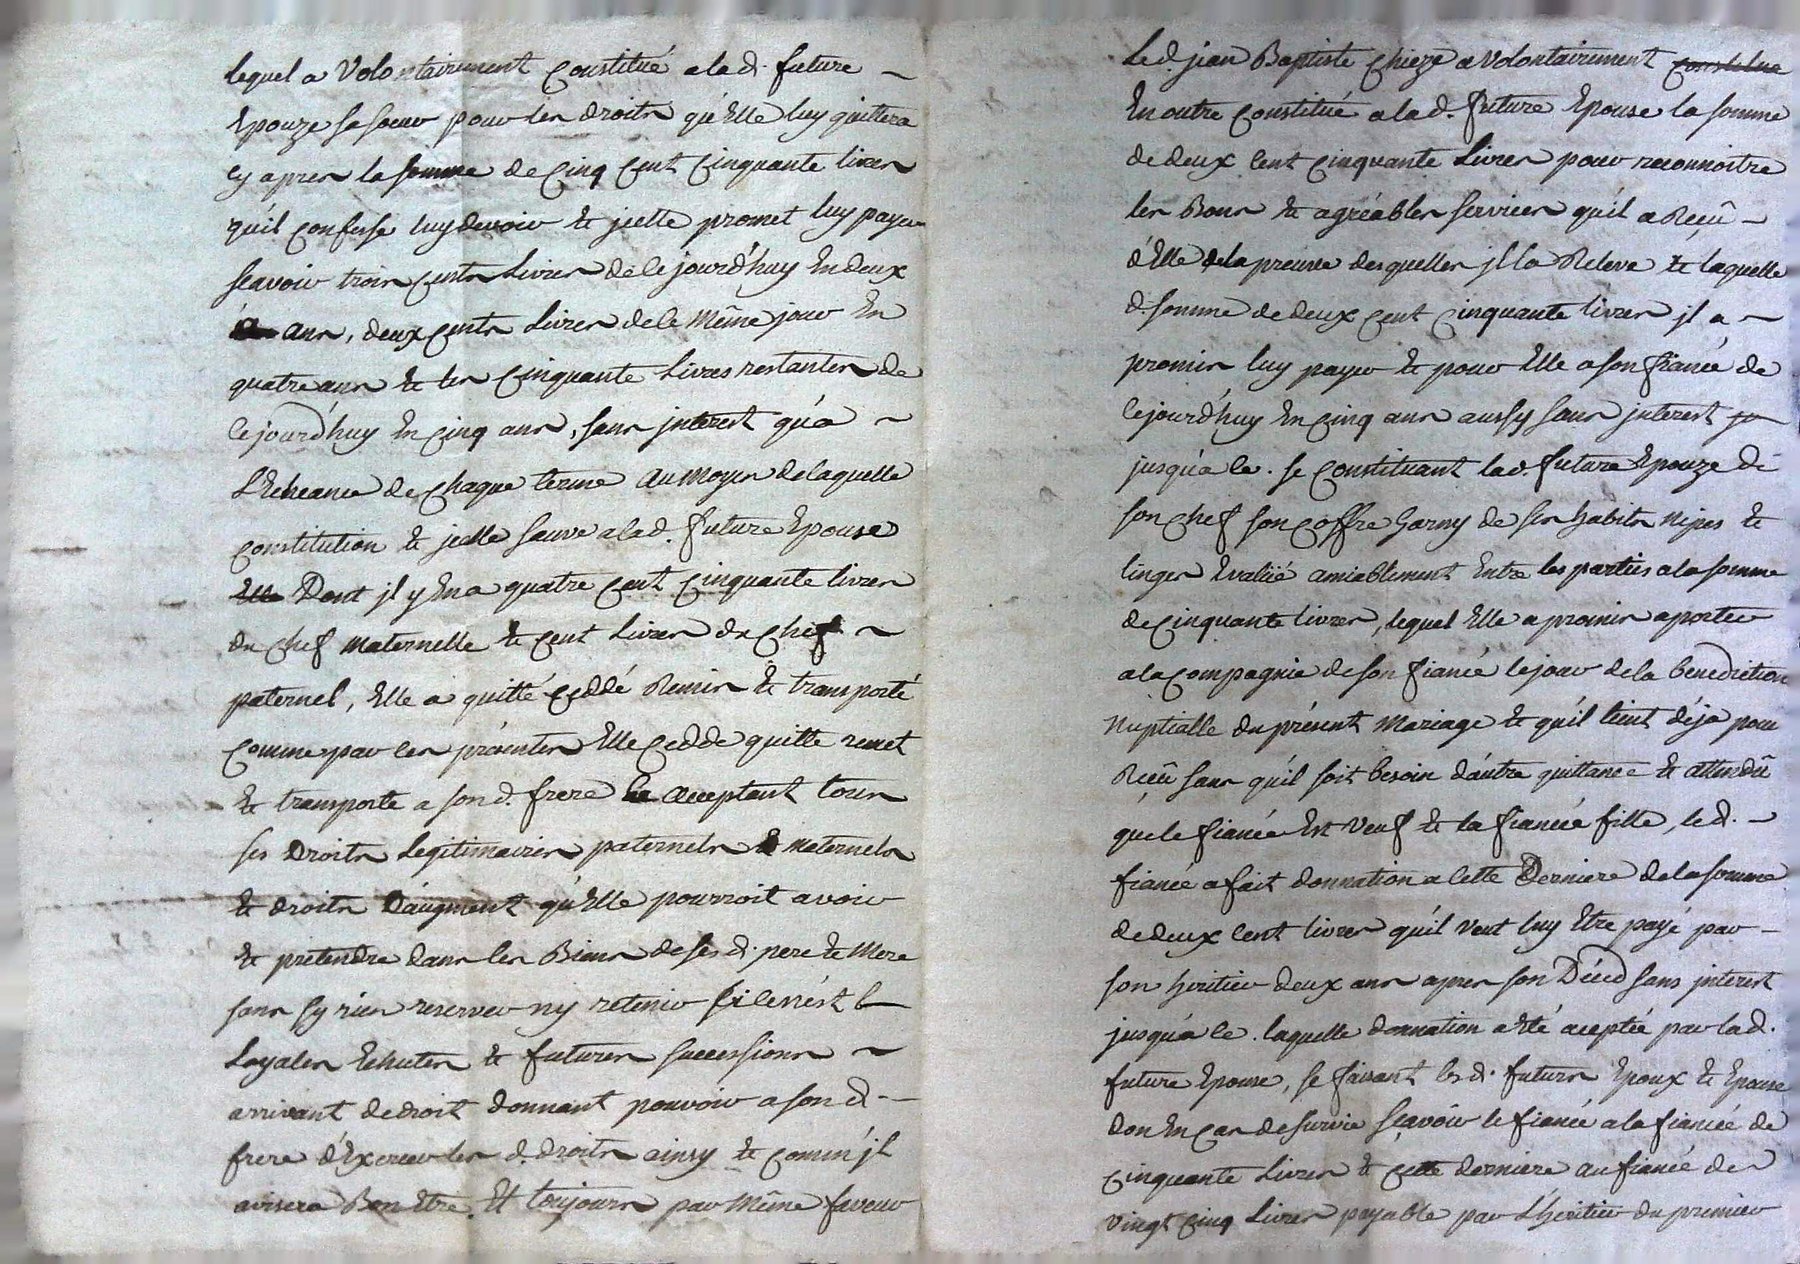 lequel a Volontairement Constitué a la d. future ~
Epouze sa soeur pour les droits qu'Elle luy quittera
cy apres la somme de Cinq Cent Cinquante livres
qu'il Confesse luy devoir et jcelle promet luy payer
scavoir trois Cents Livres de ce jourd'huy En deux
ans, deux Cents Livres de ce Même jour En
quatre ans et les Cinquante Livres restantes de
ce jourd'huy En Cinq ans, sans jnterest qu'a ~
L'Echeance de Chaque terme au moyen de laquelle
Constitution et jcelle sauve a la d. future Epouse
Elle Dont jl y En a quatre Cent Cinquante livres
du Chef Maternelle et Cent Livres du Chef ~
paternel, Elle a quitté Ceddé Remis et transporté
Comme par les présentes Elle Cedde quitte remet
et transporte a son d. frere acceptant tous
ses Droits Legitimaires paternels et Maternels
et droits D'augment qu'Elle pourroit avoir
et pretendre dans les Biens de ses d. pere et Mere
sans sy rien reserver ny retenir si ce n'est
Loyales Echutes et futures successions ~
arrivant de droit donnant pouvoir a son d. ~
frere d'Exercer les d. droits ainsy et Comm'jl
avisera Bon Etre. Et toujours par Même faveur
Le d. jean Baptiste Chieze a Volontairement Constitué
En outre Constitué a la d. future Epouse la somme
de deux Cent Cinquante Livres pour reconnoitre
les Bons et agréables services qu'il a Reçû ~
d'Elle de la preuve desquelles jl la Releve et laquelle
d. somme de deux Cent Cinquante livres jl a ~
promis luy payer et pour Elle a son fiancé de
ce jourd'huy En Cinq ans aussy sans jnterest ju
jusqu'a ce. se Constituant la d. future Epouze de
son Chef son Coffre Garny de ses habits Nipes et
linges Evalué amiablement Entre les parties a la somme
de Cinquante livres, lequel Elle a promis aporter
a la Compagnie de son fiancé le jour de la benediction
Nuptialle du présent Mariage et qu'il tient déja pour
Reçû sans qu'il soit besoin d'autre quittance et attendû
que le fiancé Est Veuf et la fiancée fille, le d. ~
fiancé a fait donnation a Cette Derniere de la somme
de deux Cent livres qu'il Veut luy Etre payé par ~
son heritier deux ans apres son Décéd sans jnterest
jusqu'a ce. laquelle donnation a Eté aceptée par la d.
future Epouse, se faisant les d. futurs Epoux et Epouse
don En Cas de survie scavoir le fiancé a la fiancée de
Cinquante Livres et Cette derniere au fiancé de
Vingt Cinq Livres payable par L'heritier du premier